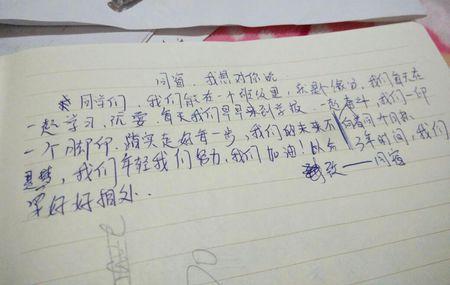 同窗，我想对你说
同学们，我们能在一个班级里，就是个缘分，我们每天在
一起学习，玩耍，每天我们早早来到学校，一起奋斗，我们一印
一个脚印，踏实走好每一步，我们的未来不
，我们年轻我们努力，我们加油！以后 3年时间，我们
好好相处. 致——同窗